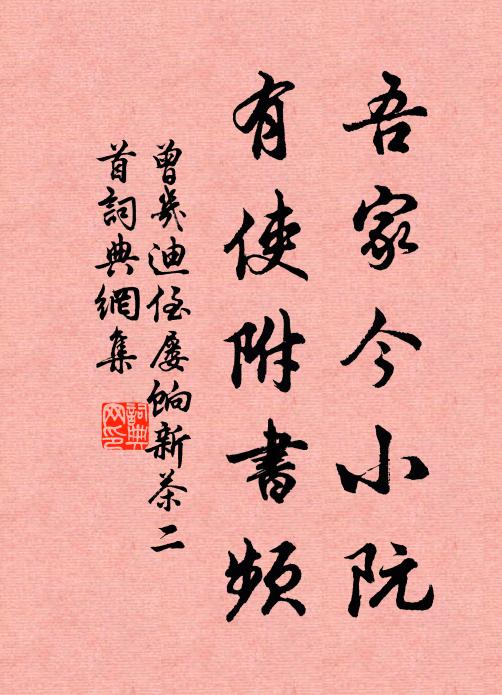 吾家今小阮
有使附書頻
曾幾迪侄屡餉新茶二
首詞典網集
詞典網印